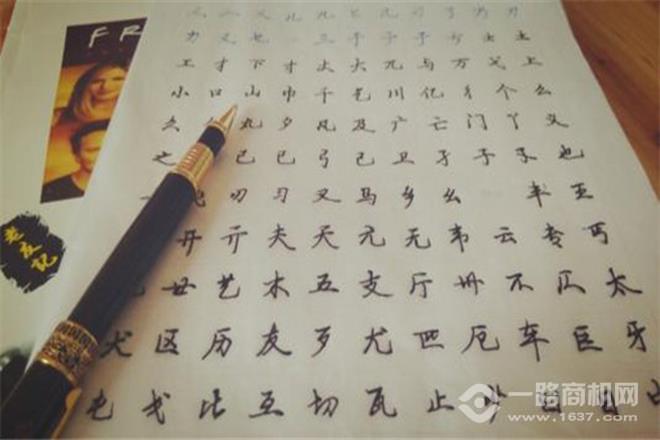 FR
老友记
力又也一三于于于亏士土
王才下寸丈大兀与万弋上
小口山巾千乞川亿彳个么
么丸夕凡及广亡门丫义
之己巳弓己卫孑子孓也
也刃习叉马乡幺丰王
开亓夫天元无韦云专丐
廿艺木五支厅卅不仄太
犬区历友歹尤匹厄车巨牙
屯戈比互切瓦止少
一路商机网
www.1637.com